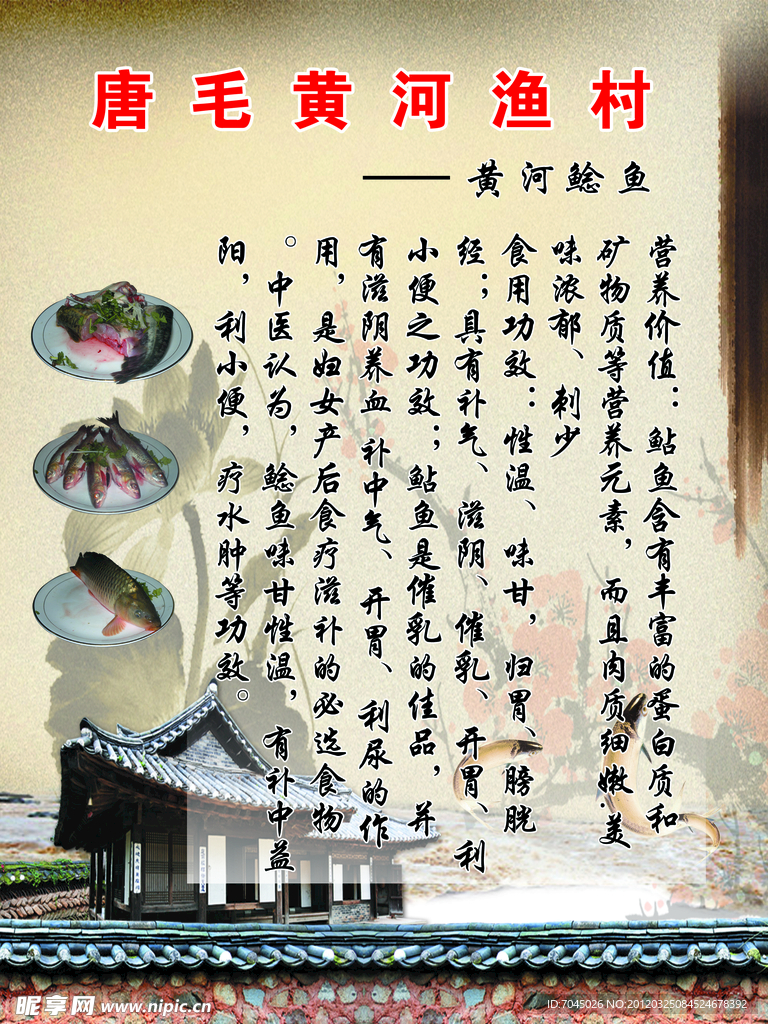 唐毛黄河渔村
——黄河鲶鱼
营养价值：鲇鱼含有丰富的蛋白质和
矿物质等营养元素，而且肉质细嫩.美
味浓郁、刺少
食用功效：性温、味甘，归胃、膀胱
经；具有补气、滋阴、催乳、开胃、利
小便之功效；鲇鱼是催乳的佳品，并
有滋阴养血 补中气、开胃、利尿的作
用，是妇女产后食疗滋补的必选食物
。中医认为，鲶鱼味甘性温，有补中益
阳，利小便，疗水肿等功效。
昵享网 www.nipic.cn
ID:7045026 NO:20120325084524678392